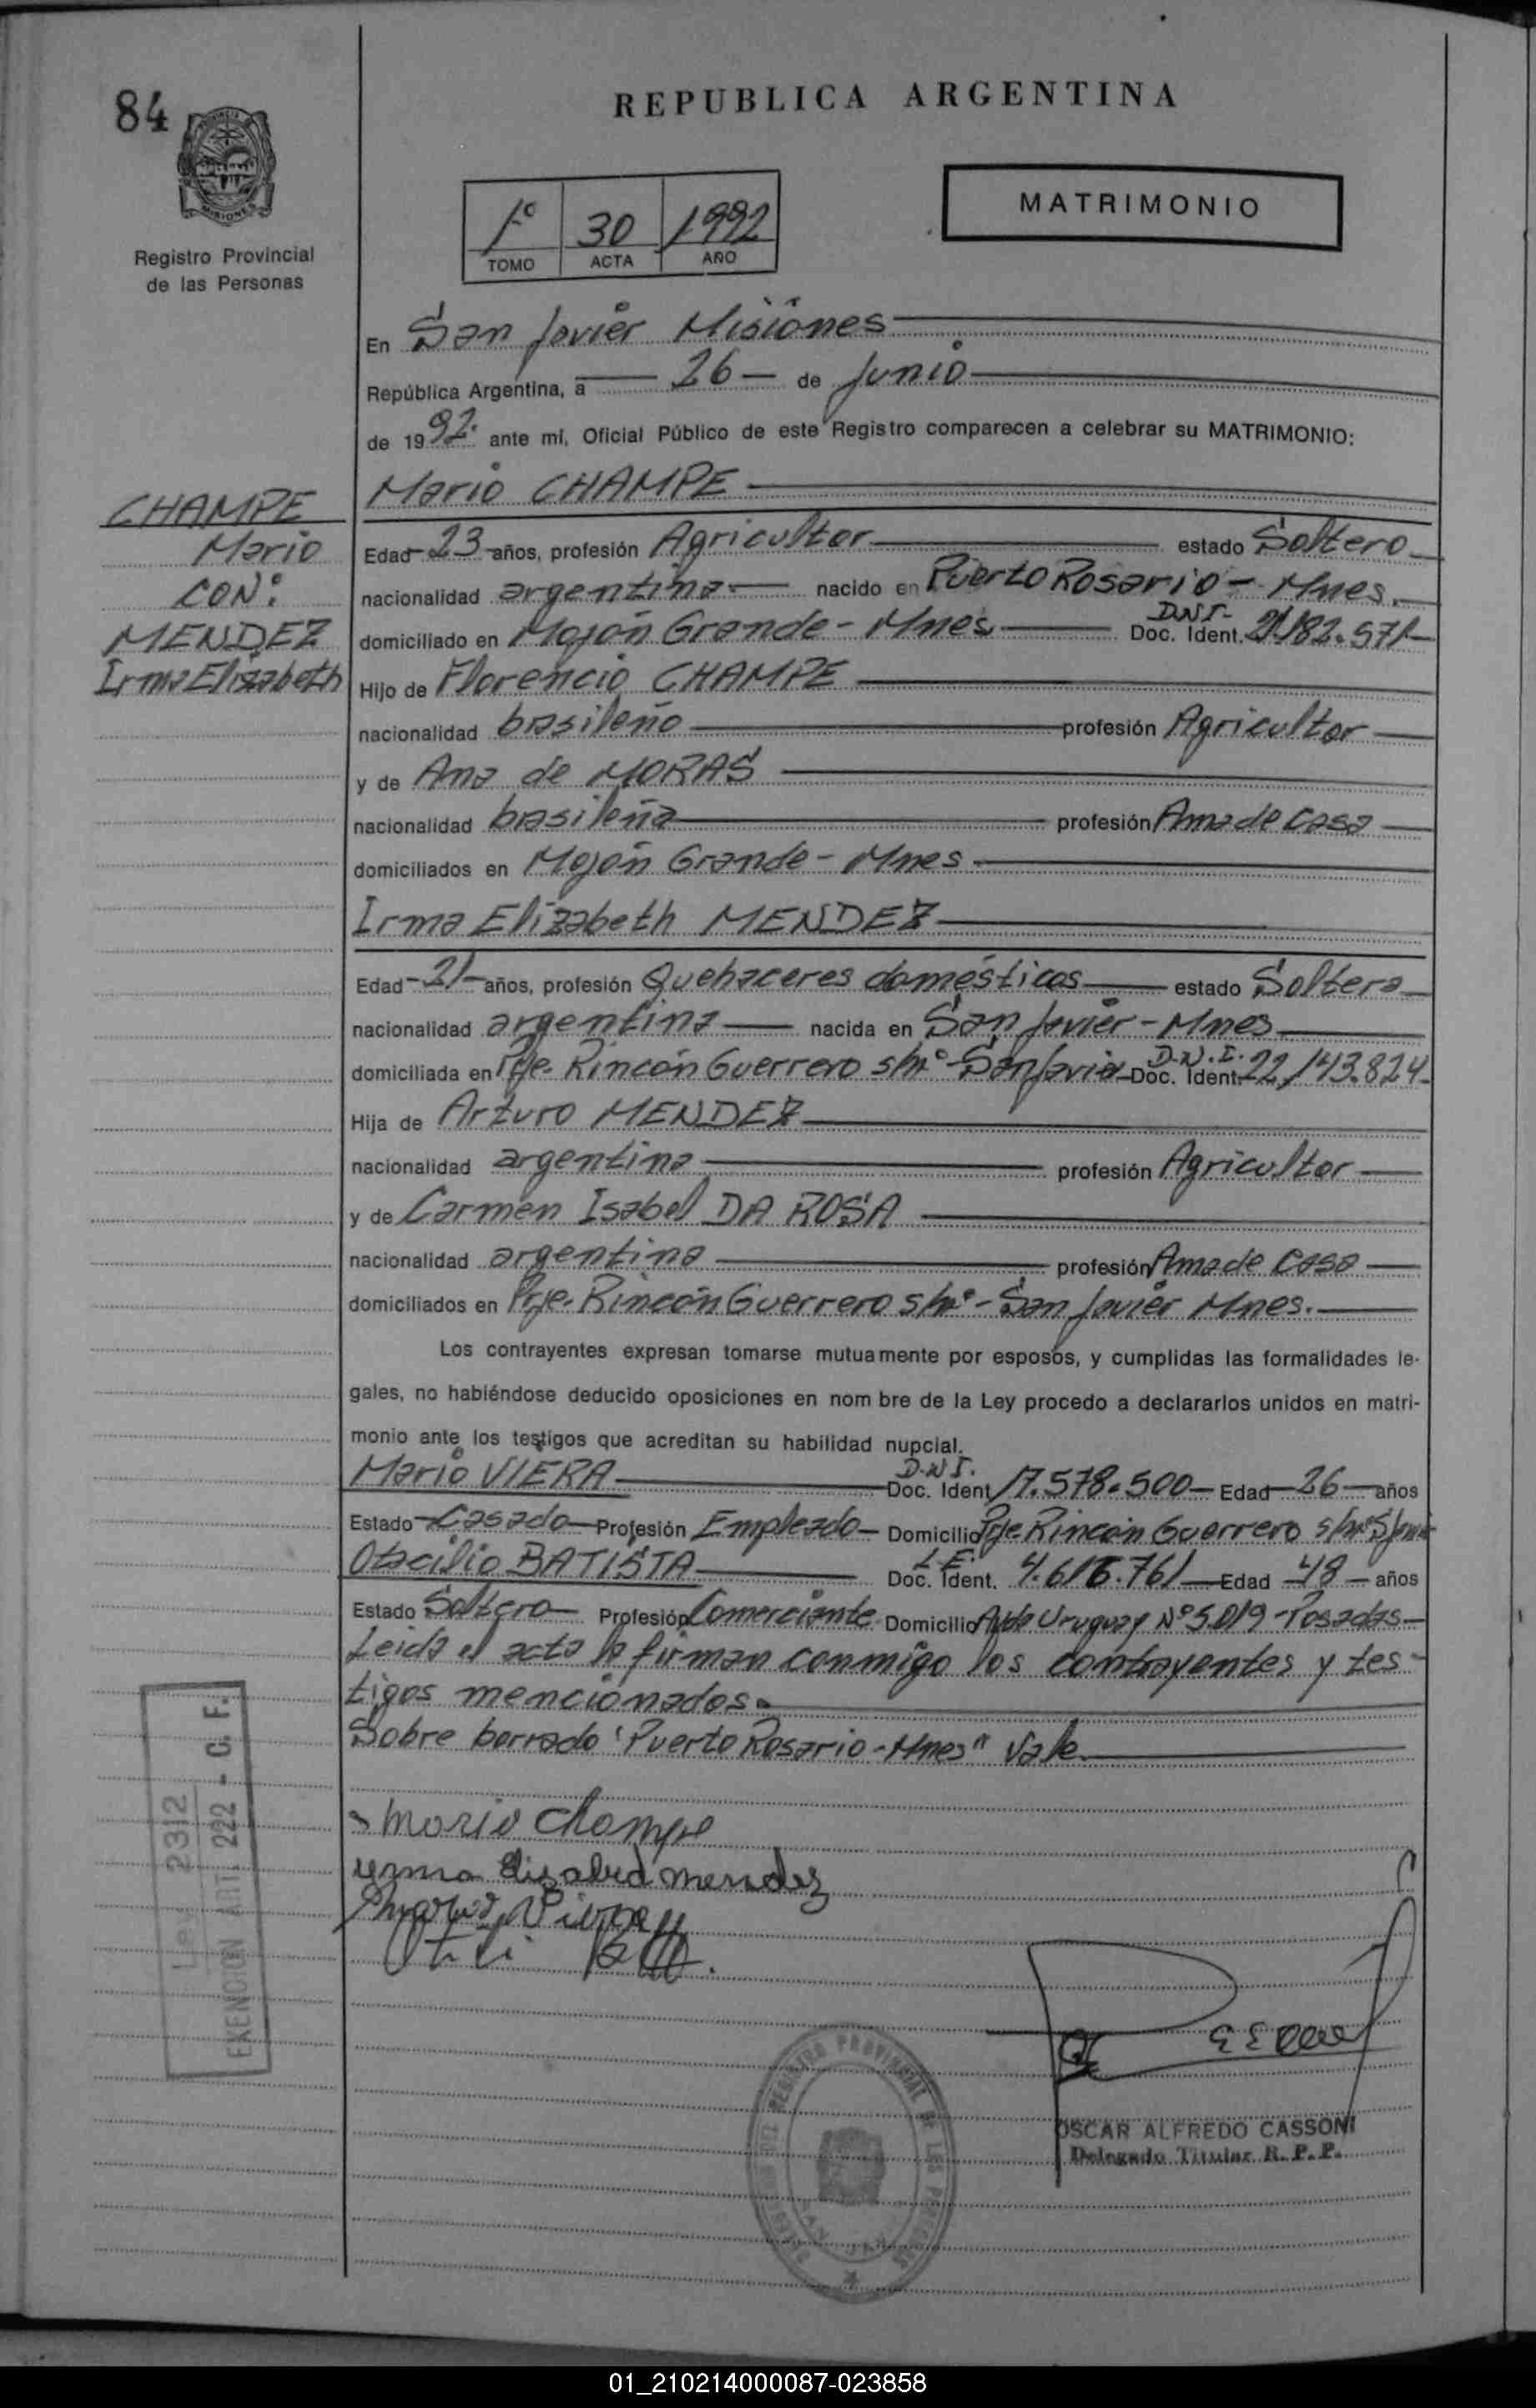 84
REPUBLICA ARGENTINA
MISIONES
Registro Provincial
de las Personas
1º 30 1992
TOMO ACTA AÑO
MATRIMONIO
En San Javier Misiones
República Argentina, a 26 de Junio
de 1992. ante mí, Oficial Público de este Registro comparecen a celebrar su MATRIMONIO:
CHAMPE
Mario
CON:
MENDEZ
Irma Elizabeth
Mario CHAMPE
Edad 23 años, profesión Agricultor estado Soltero
nacionalidad argentina nacido en Puerto Rosario - Mnes.
domiciliado en Mojón Grande - Mnes D.N.I. Doc. Ident. 21.182.571
Hijo de Florencio CHAMPE
nacionalidad brasileño profesión Agricultor
y de Ana de MORAS
nacionalidad brasileña profesión Ama de casa
domiciliados en Mojón Grande - Mnes
Irma Elizabeth MENDEZ
Edad 21 años, profesión Quehaceres domésticos estado Soltera
nacionalidad argentina nacida en San Javier - Mnes
domiciliada en Pje. Rincón Guerrero s/nº - San Javier D.N.I. Doc. Ident. 22.143.824
Hija de Arturo MENDEZ
nacionalidad argentina profesión Agricultor
y de Carmen Isabel DA ROSA
nacionalidad argentina profesión Ama de casa
domiciliados en Prje. Rincón Guerrero s/nº - San Javier Mnes.
Los contrayentes expresan tomarse mutuamente por esposos, y cumplidas las formalidades le-
gales, no habiéndose deducido oposiciones en nom bre de la Ley procedo a declararlos unidos en matri-
monio ante los testigos que acreditan su habilidad nupcial.
Mario VIERA D.N.I. Doc. Ident. 17.578.500 Edad 26 años
Estado Casado Profesión Empleado Domicilio Pje. Rincón Guerrero s/nº
Otacilio BATISTA L.E. Doc. Ident. Edad 48 años
Estado Soltero Profesión Comerciante Domicilio Avda Uruguay Nº 5.019 - Posadas
Leida el acta la firman conmigo los contrayentes y tes-
tigos mencionados.
Sobre borrado "Puerto Rosario - Mnes" Vale
Mario Champe
irma Elizabed mendez
Mario Viera
OSCAR ALFREDO CASSONI
Delegado Titular R. P. P.
Ley 2312
EXENCION ART. 222 - C. F.
REGISTRO PROVINCIAL DE LAS PERSONAS
01_210214000087-023858